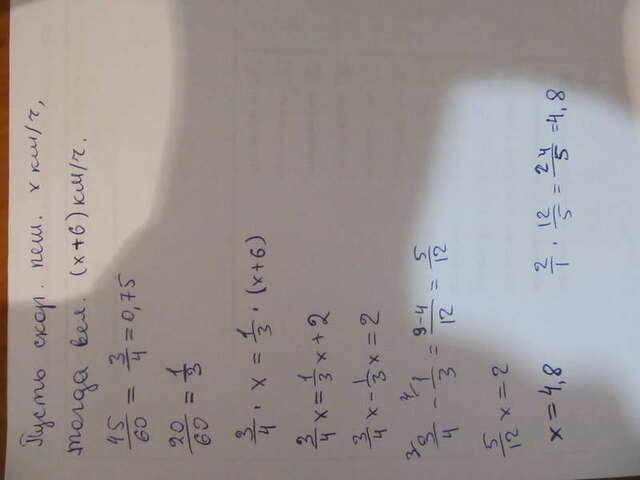 Пусть скор. пеш. х км/ч,
тогда вел. (х+6) км/ч.
45/60 = 3/4 = 0,75
20/60 = 1/3
3/4 · x = 1/3 · (x+6)
3/4 x = 1/3 x + 2
3/4 x - 1/3 x = 2
³3/4 - ⁴1/3 = 9-4/12 = 5/12
5/12 x = 2
x = 4,8
2/1 · 12/5 = 24/5 = 4,8